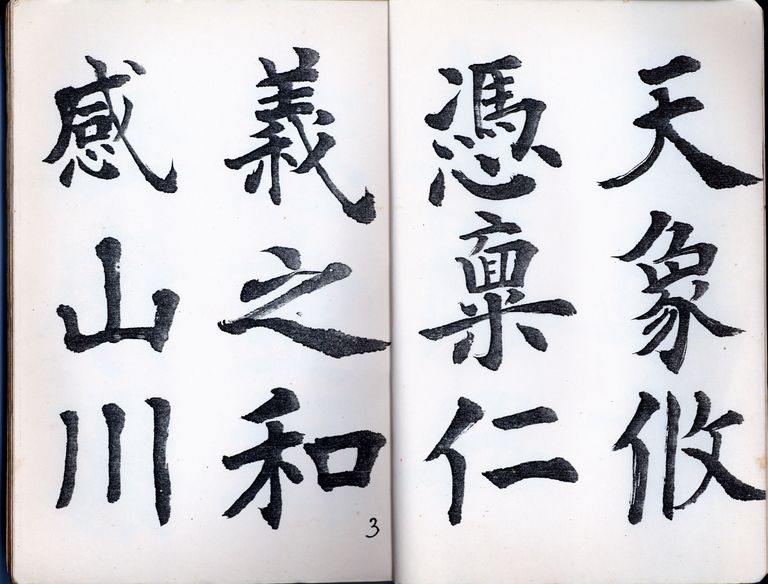 天象攸
憑稟仁
義之和
感山川
3